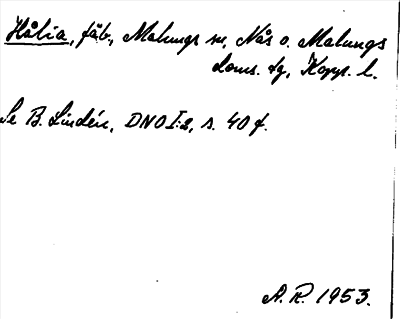 Hålia, fäb., Malungs sn, Nås o. Malungs
doms. tg, Kopp. l.
Se B. Lindén, DNO I:2, s. 40 f.
A. R. 1953.